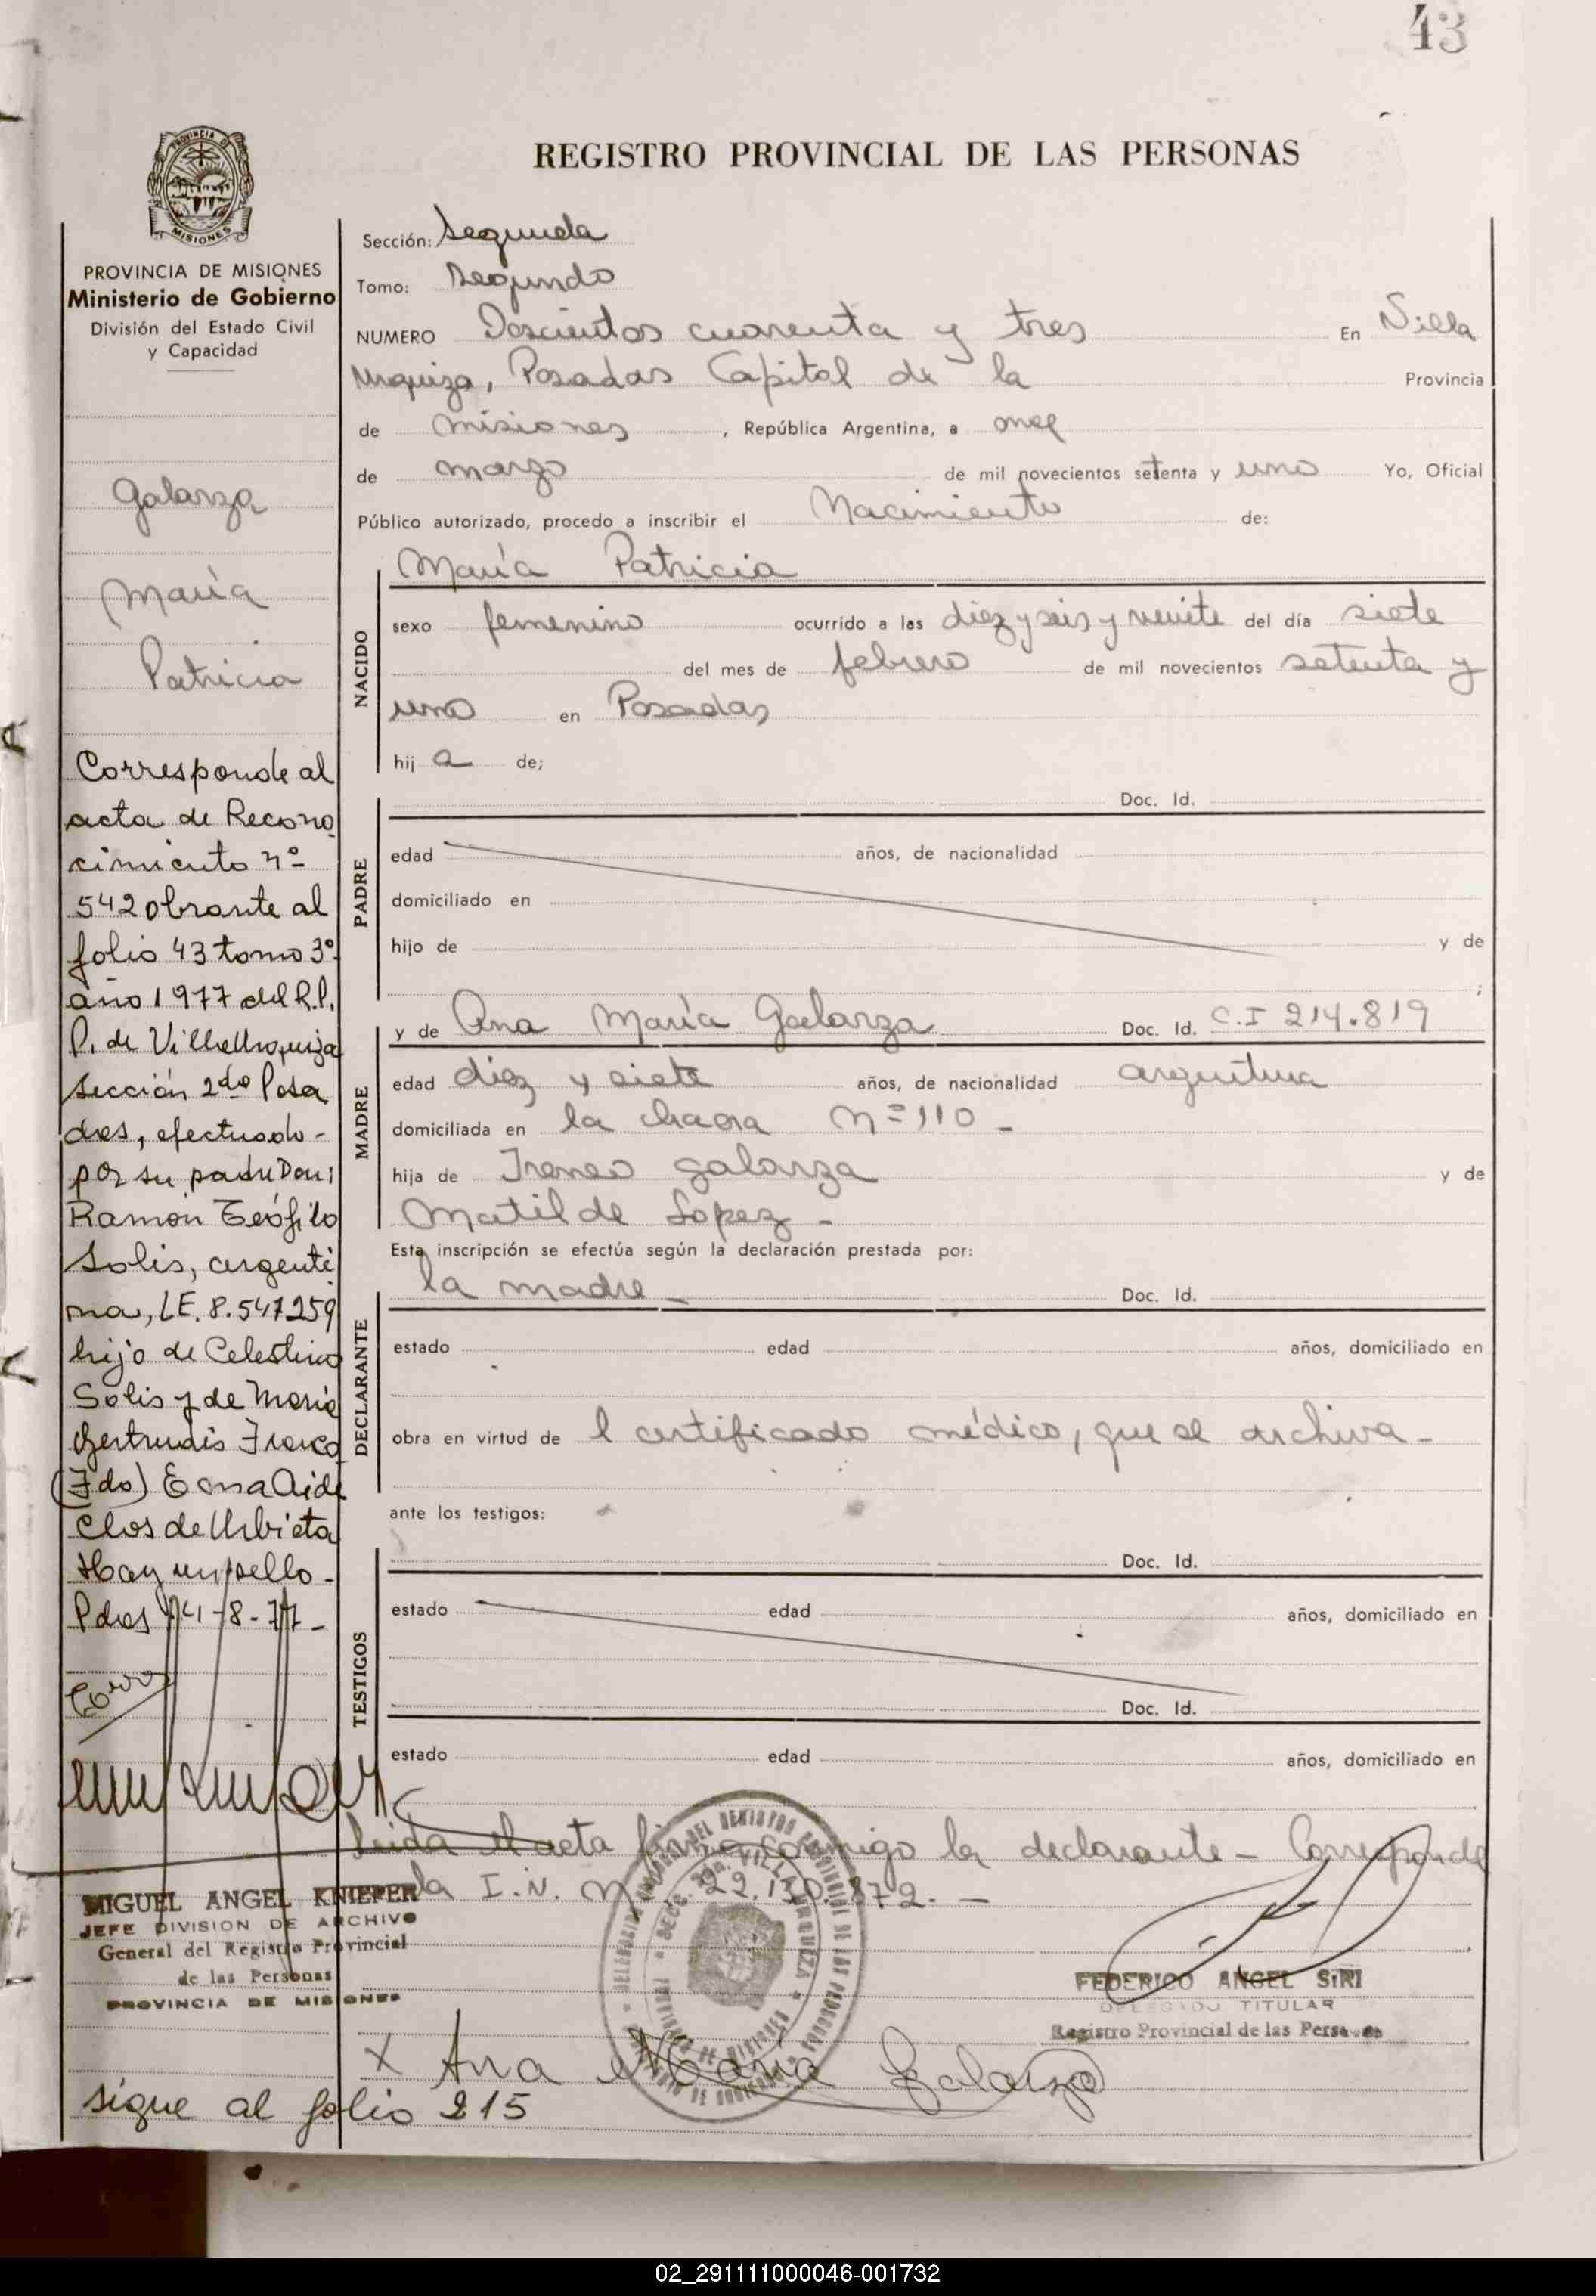 43
REGISTRO PROVINCIAL DE LAS PERSONAS
PROVINCIA
MISIONES
PROVINCIA DE MISIONES
Ministerio de Gobierno
División del Estado Civil
y Capacidad
Galarza
María
Patricia
Corresponde al
acta de Recono
cimiento nº
542 obrante al
folio 43 tomo 3º
año 1977 del R.P.
P. de Villa Urquiza
sección 2do Posa
das, efectuado-
por su padre Don:
Ramón Teófilo
Solis, argenti
no, LE. 8.547259
hijo de Celestino
Solis y de María
Gertrudis Franco
(Fdo) Edna Aide
Clos de Urbieta
Hay un sello-
Pdas 14-8-77-
MIGUEL ANGEL KNIEPER
JEFE DIVISION DE ARCHIVO
General del Registro Provincial
de las Personas
PROVINCIA DE MISIONES
Sección: Segunda
Tomo: Segundo
NUMERO Doscientos cuarenta y tres En Villa
Urquiza, Posadas Capital de la Provincia
de Misiones, República Argentina, a once
de marzo de mil novecientos setenta y uno Yo, Oficial
Público autorizado, procedo a inscribir el Nacimiento de:
NACIDO
María Patricia
sexo femenino ocurrido a las diez y seis y veinte del día siete
del mes de febrero de mil novecientos setenta y
uno en Posadas
hij a de;
PADRE
Doc. Id.
edad años, de nacionalidad
domiciliado en
hijo de y de
;
MADRE
y de Ana María Galarza Doc. Id. C.I 214.819
edad diez y siete años, de nacionalidad argentina
domiciliada en la chacra Nº 110 -
hija de Ireneo Galarza y de
Matilde Lopez -
Esta inscripción se efectúa según la declaración prestada por:
DECLARANTE
la madre - Doc. Id.
estado edad años, domiciliado en
obra en virtud de l certificado médico, que se archiva -
ante los testigos:
TESTIGOS
Doc. Id.
estado edad años, domiciliado en
Doc. Id.
estado edad años, domiciliado en
Leida el acta firma conmigo la declarante - Corresponde
la I.N. Nº 22.130.872. -
FEDERICO ANGEL SIRI
DELEGADO TITULAR
Registro Provincial de las Personas
X Ana María Galarza
sigue al folio 215
02_291111000046-001732